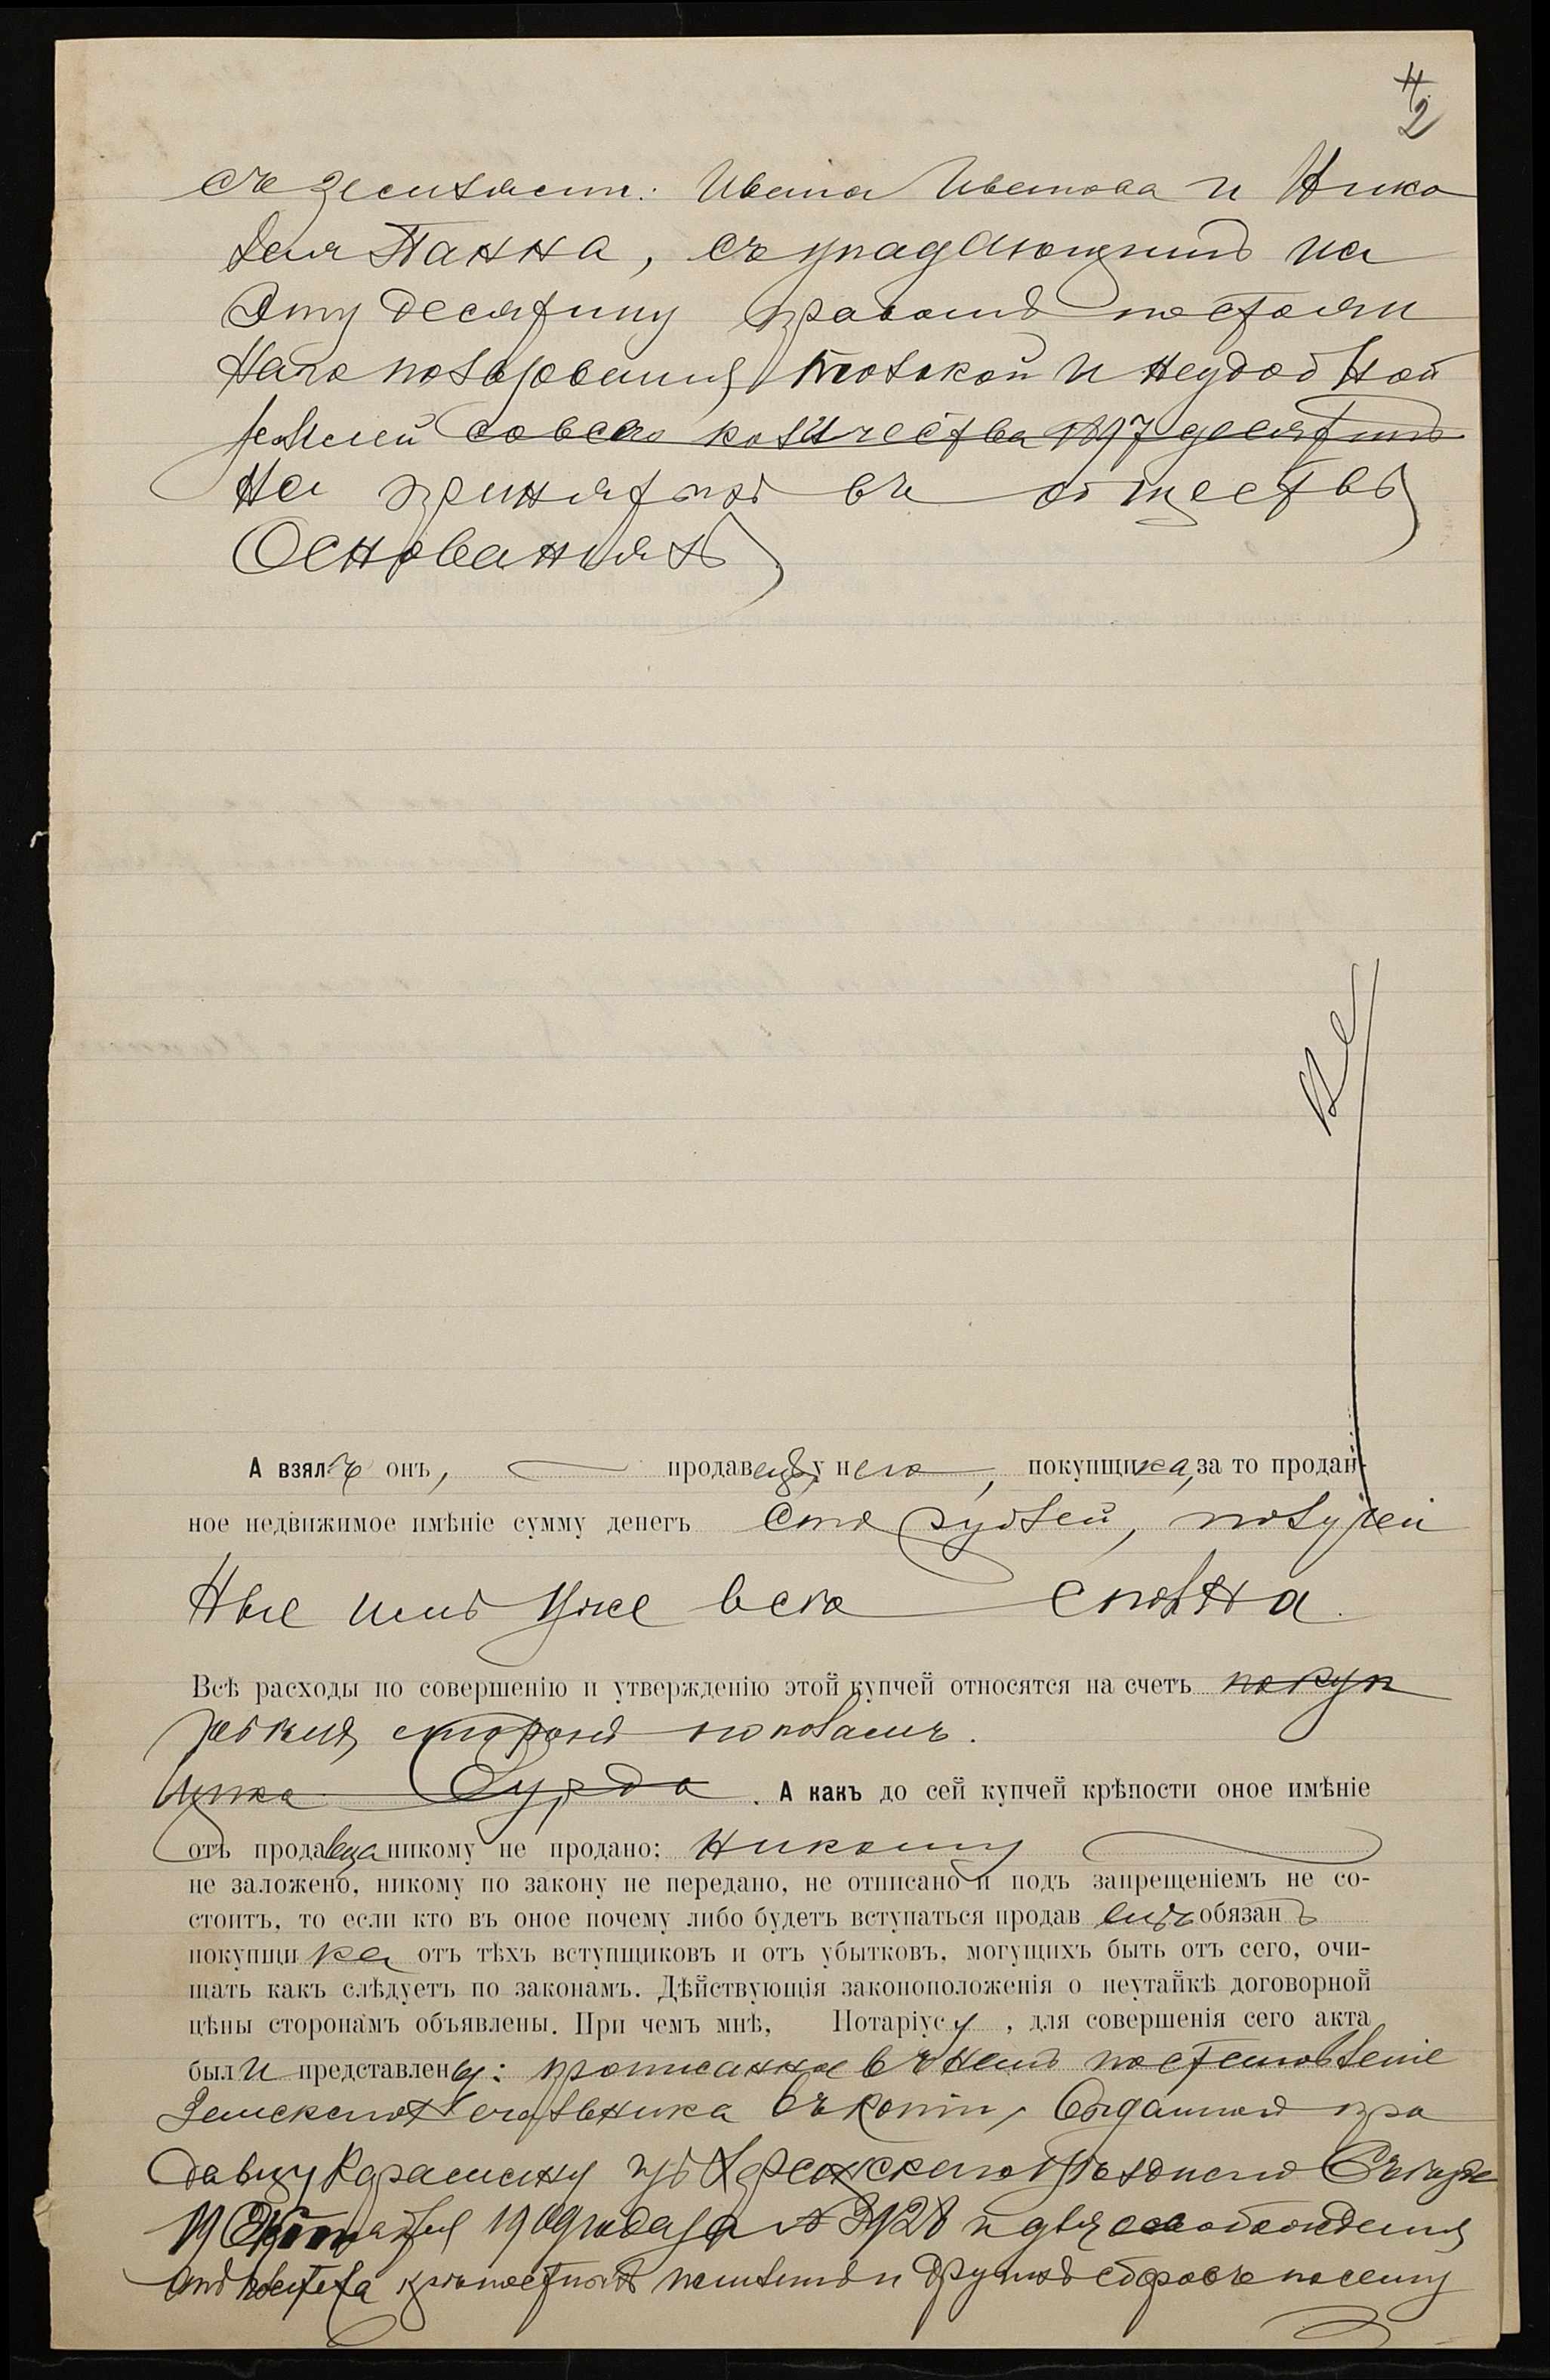 2
съ землями: Ивана Иванова и Нико
лая Панна, съ упадающимъ на
эту десятину правомъ постоян
наго пользованія толокой и неудобной
землей со всего количества 1897 десятинъ
на принятыхъ въ обществѣ
основаніяхъ
А взялъ онъ, продавецъ, у него, покупщика, за то продан-
ное недвижимое имѣніе сумму денегъ сто рублей, получен
ные имъ уже все сполна.
Всѣ расходы по совершенію и утвержденію этой купчей относятся на счетъ покуп
обѣихъ сторонъ пополамъ.
щика Бурда. А какъ до сей купчей крѣпости оное имѣніе
отъ продавца никому не продано; никому
не заложено, никому по закону не передано, не отписано и подъ запрещеніемъ не со-
стоитъ, то если кто въ оное почему либо будетъ вступаться продавецъ обязанъ
покупщика отъ тѣхъ вступщиковъ и отъ убытковъ, могущихъ быть отъ сего, очи-
щать какъ слѣдуетъ по законамъ. Дѣйствующія законоположенія о неутайкѣ договорной
цѣны сторонамъ объявлены. При чемъ мнѣ, Нотаріусу, для совершенія сего акта
были представлены: прописанное въ немъ постановленіе
Земскаго Начальника въ копіи, выданной про
давцу Караману изъ Херсонскаго Уѣзднаго Съѣзда
19 Октября 1909 года за № 3928 и для освобожденія
отъ платежа крѣпостныхъ пошлинъ и другихъ сборовъ по сему